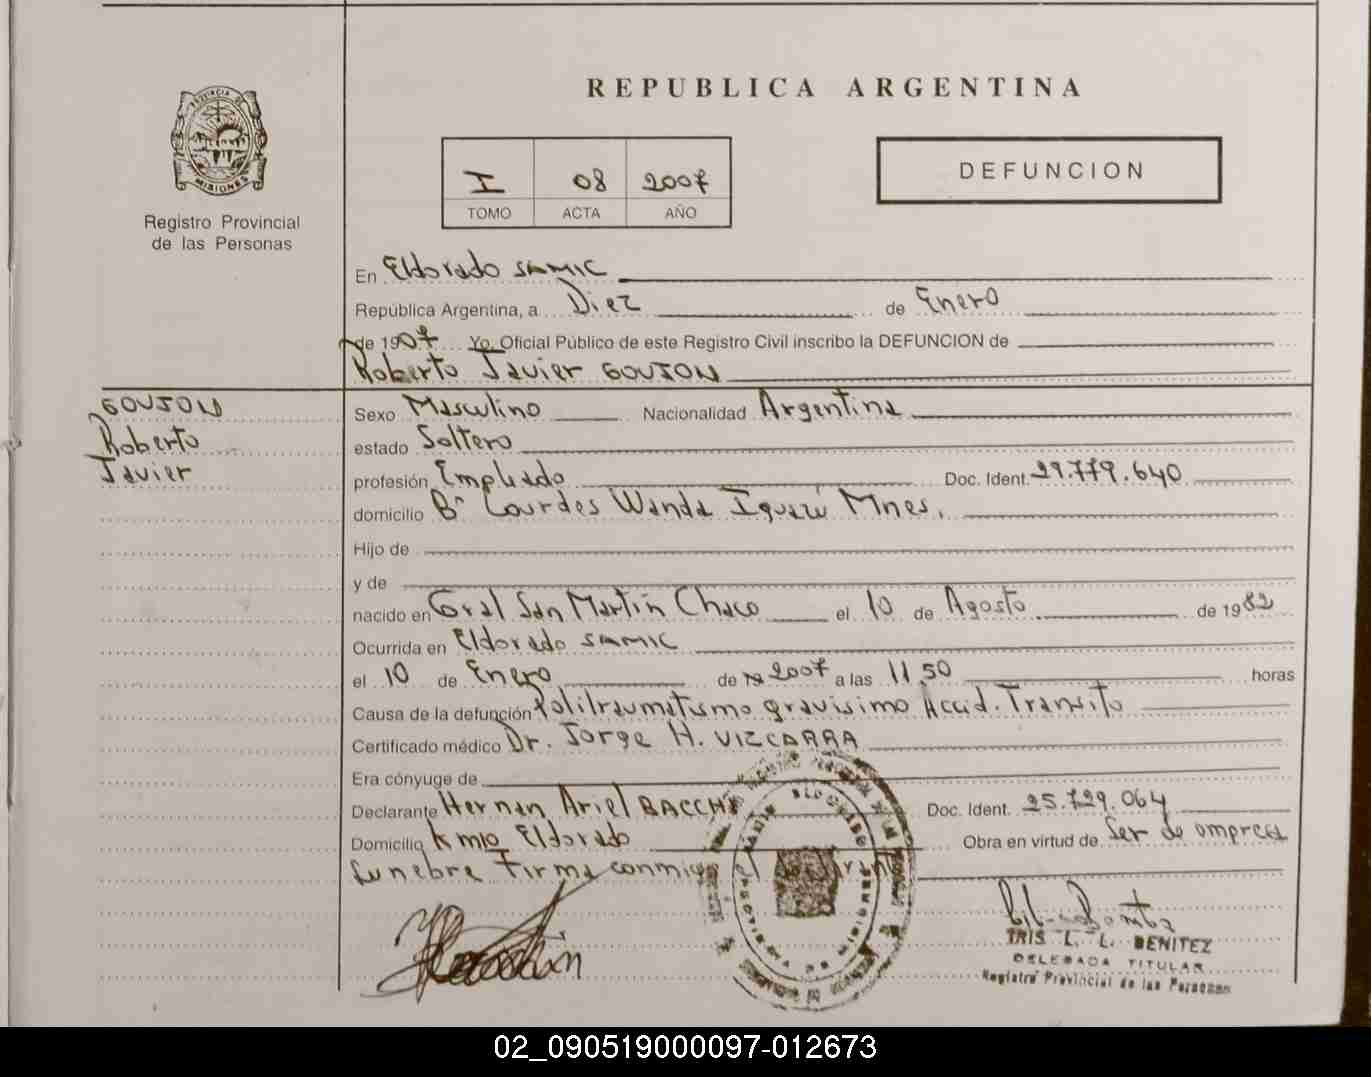 REPUBLICA ARGENTINA
PROVINCIA DE
MISIONES
Registro Provincial
de las Personas
I 08 2007
TOMO ACTA AÑO
DEFUNCION
En Eldorado SAMIC
República Argentina, a Diez de Enero
de 1907 Yo, Oficial Público de este Registro Civil inscribo la DEFUNCION de
Roberto Javier GOUJON
GOUJON
Roberto
Javier
Sexo Masculino Nacionalidad Argentina
estado Soltero
profesión Empleado Doc. Ident. 29.779.640
domicilio Bº Lourdes Wanda Iguazú Mnes.
Hijo de
y de
nacido en Gral San Martín Chaco el 10 de Agosto de 1982
Ocurrida en Eldorado SAMIC
el 10 de Enero de 19 2007 a las 11,50 horas
Causa de la defunción Politraumatismo gravisimo Accid. Transito
Certificado médico Dr. Jorge H. VIZCARRA
Era cónyuge de
Declarante Hernan Ariel BACCHI Doc. Ident. 25.729.064
Domicilio Km10 Eldorado Obra en virtud de Ser de empresa
funebre Firma conmigo el
IRIS L. L. BENITEZ
DELEGADA TITULAR
Registro Provincial de las Personas
02_090519000097-012673